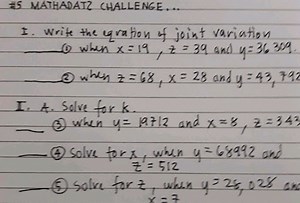 #5 MATHADATZ CHALLENGE...
I. Write the eqration of joint variation
① when x = 19, z = 39 and y = 36 309.
② when z = 68, x = 28 and y = 43, 792
II. A. Solve for k.
③ when y = 19712 and x = 8, z = 343
④ Solve for x, when y = 68992 and
z = 512
⑤ Solve for z, when y = 28, 028 and
x = 7